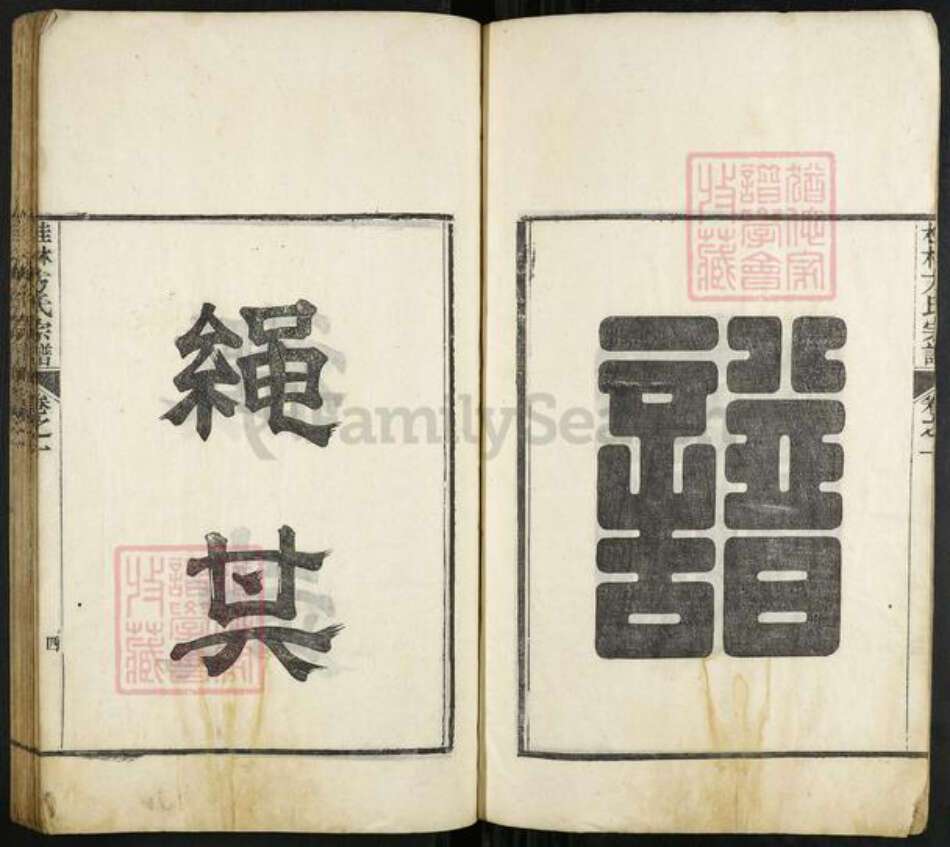 桂林方氏宗譜
卷之一
譜
猶他家
譜學會
收藏
繩
其
桂林方氏宗譜
卷之一
四
譜學會
收藏
FamilySearch